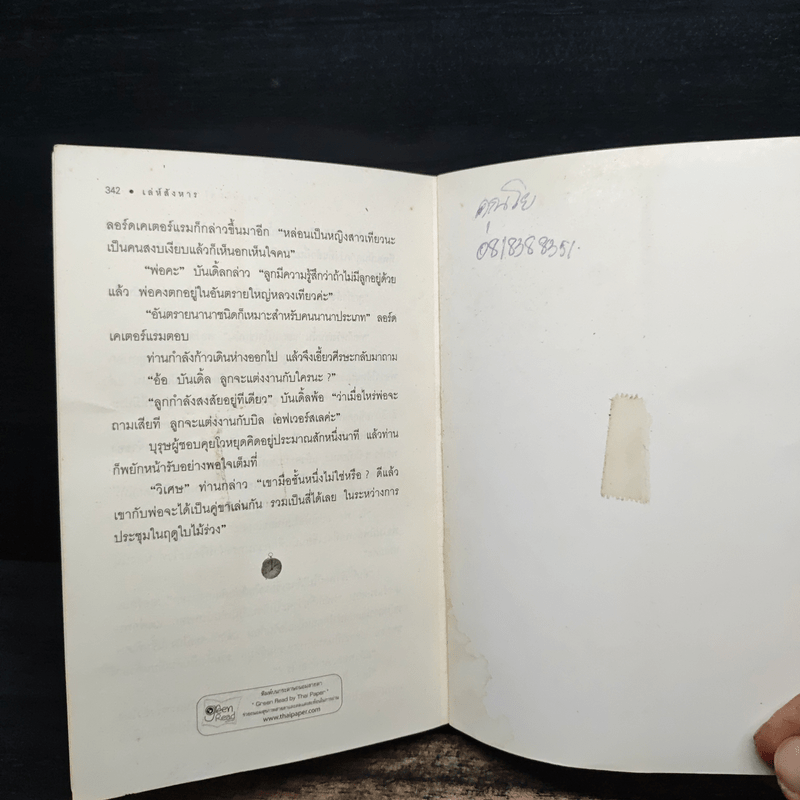 342 • เล่ห์สังหาร
ลอร์ดเคเตอร์แรมก็กล่าวขึ้นมาอีก “หล่อนเป็นหญิงสาวเทียวนะ
เป็นคนสงบเงียบแล้วก็เห็นอกเห็นใจคน”
“พ่อคะ” บันเดิ้ลกล่าว “ลูกมีความรู้สึกว่าถ้าไม่มีลูกอยู่ด้วย
แล้ว พ่อคงตกอยู่ในอันตรายใหญ่หลวงเทียวค่ะ”
“อันตรายนานาชนิดก็เหมาะสำหรับคนนานาประเภท” ลอร์ด
เคเตอร์แรมตอบ
ท่านกำลังก้าวเดินห่างออกไป แล้วจึงเอี้ยวศีรษะกลับมาถาม
“อ้อ บันเดิ้ล ลูกจะแต่งงานกับใครนะ ?”
“ลูกกำลังสงสัยอยู่ทีเดียว” บันเดิ้ลพ้อ “ว่าเมื่อไหร่พ่อจะ
ถามเสียที ลูกจะแต่งงานกับบิล เอฟเวอร์สเลค่ะ”
บุรุษผู้ชอบคุยโวหยุดคิดอยู่ประมาณสักหนึ่งนาที แล้วท่าน
ก็พยักหน้ารับอย่างพอใจเต็มที่
“วิเศษ” ท่านกล่าว “เขามือชั้นหนึ่งไม่ใช่หรือ ? ดีแล้ว
เขากับพ่อจะได้เป็นคู่ขาเล่นกัน รวมเป็นสี่ได้เลย ในระหว่างการ
ประชุมในฤดูใบไม้ร่วง”
green Read
พิมพ์บนกระดาษถนอมสายตา
“ Green Read by Thai Paper ”
www.thaipaper.com